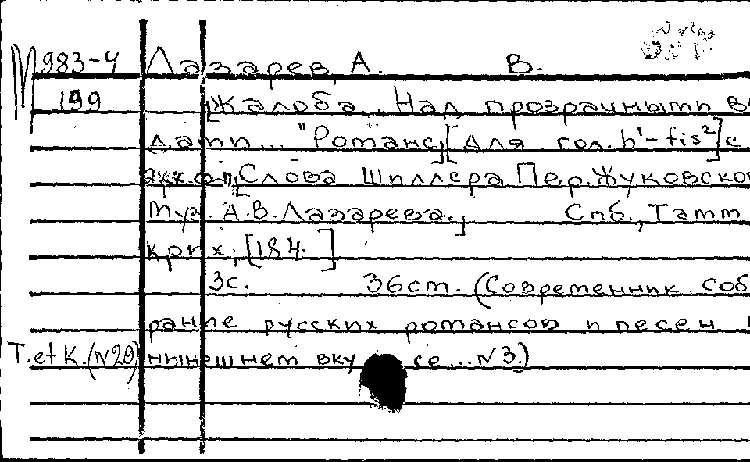 М 983-4 Лазарев, А. В.
199 [Жалоба. Над прозрачными в
дами... "Романс,][Для гол. h¹-fis²] с
акк. ф-п. [Слова Шиллера Пер. Жуковског
Муз. А.В. Лазарева.] Спб., Тамм
крих, [184. ]
3с. 36см. (Современник соб
рание русских романсов и песен
T. et K. (N29) нынешнем вку се... N3.)